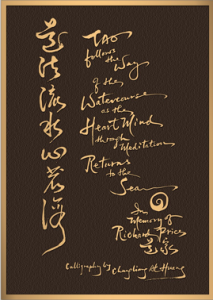 道法流水心若海
TAO
follows
the Way
of the
Watercourse
as the
Heart Mind
through
Meditation
Returns
to the
Sea
In
Memory of
Richard Price
Calligraphy by Chungliang Al Huang